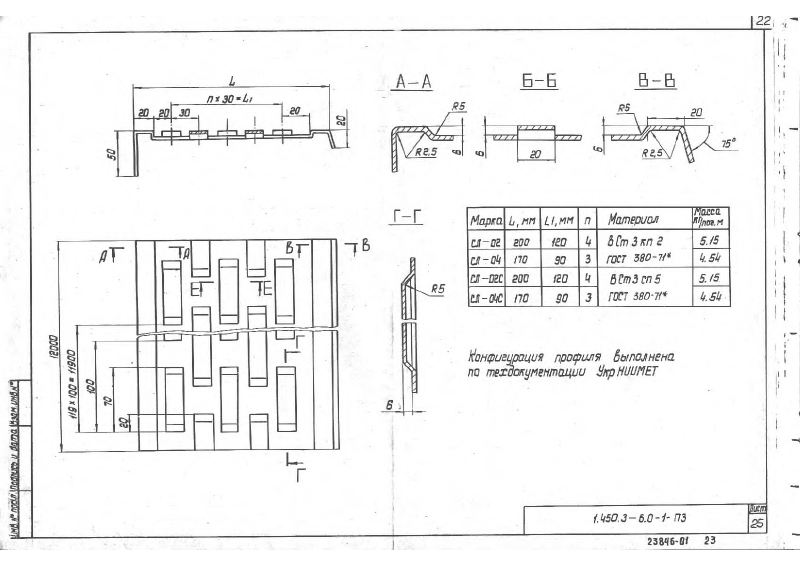 22
L
n × 30 = L1
20 20 30 20
20
50
А–А
R5
R2,5
6
Б–Б
6
20
В–В
R5
20
6
R2,5
75°
А А В В
Б Б
Г
Г
12000
119 × 100 = 11900
100
70
20
Г–Г
R5
6
Марка L, мм L1, мм n Материал Масса кг/пог. м
СЛ–02 200 120 4 ВСт 3 кп 2 5.15
СЛ–04 170 90 3 ГОСТ 380-71* 4.54
СЛ–02С 200 120 4 ВСт3 сп 5 5.15
СЛ–04С 170 90 3 ГОСТ 380-71* 4.54
Конфигурация профиля выполнена
по техдокументации УкрНИИМЕТ
Инв. № подл. Подпись и дата Взам. инв. №
1.450.3–6.0-1-П3
Лист
25
23846-01 23